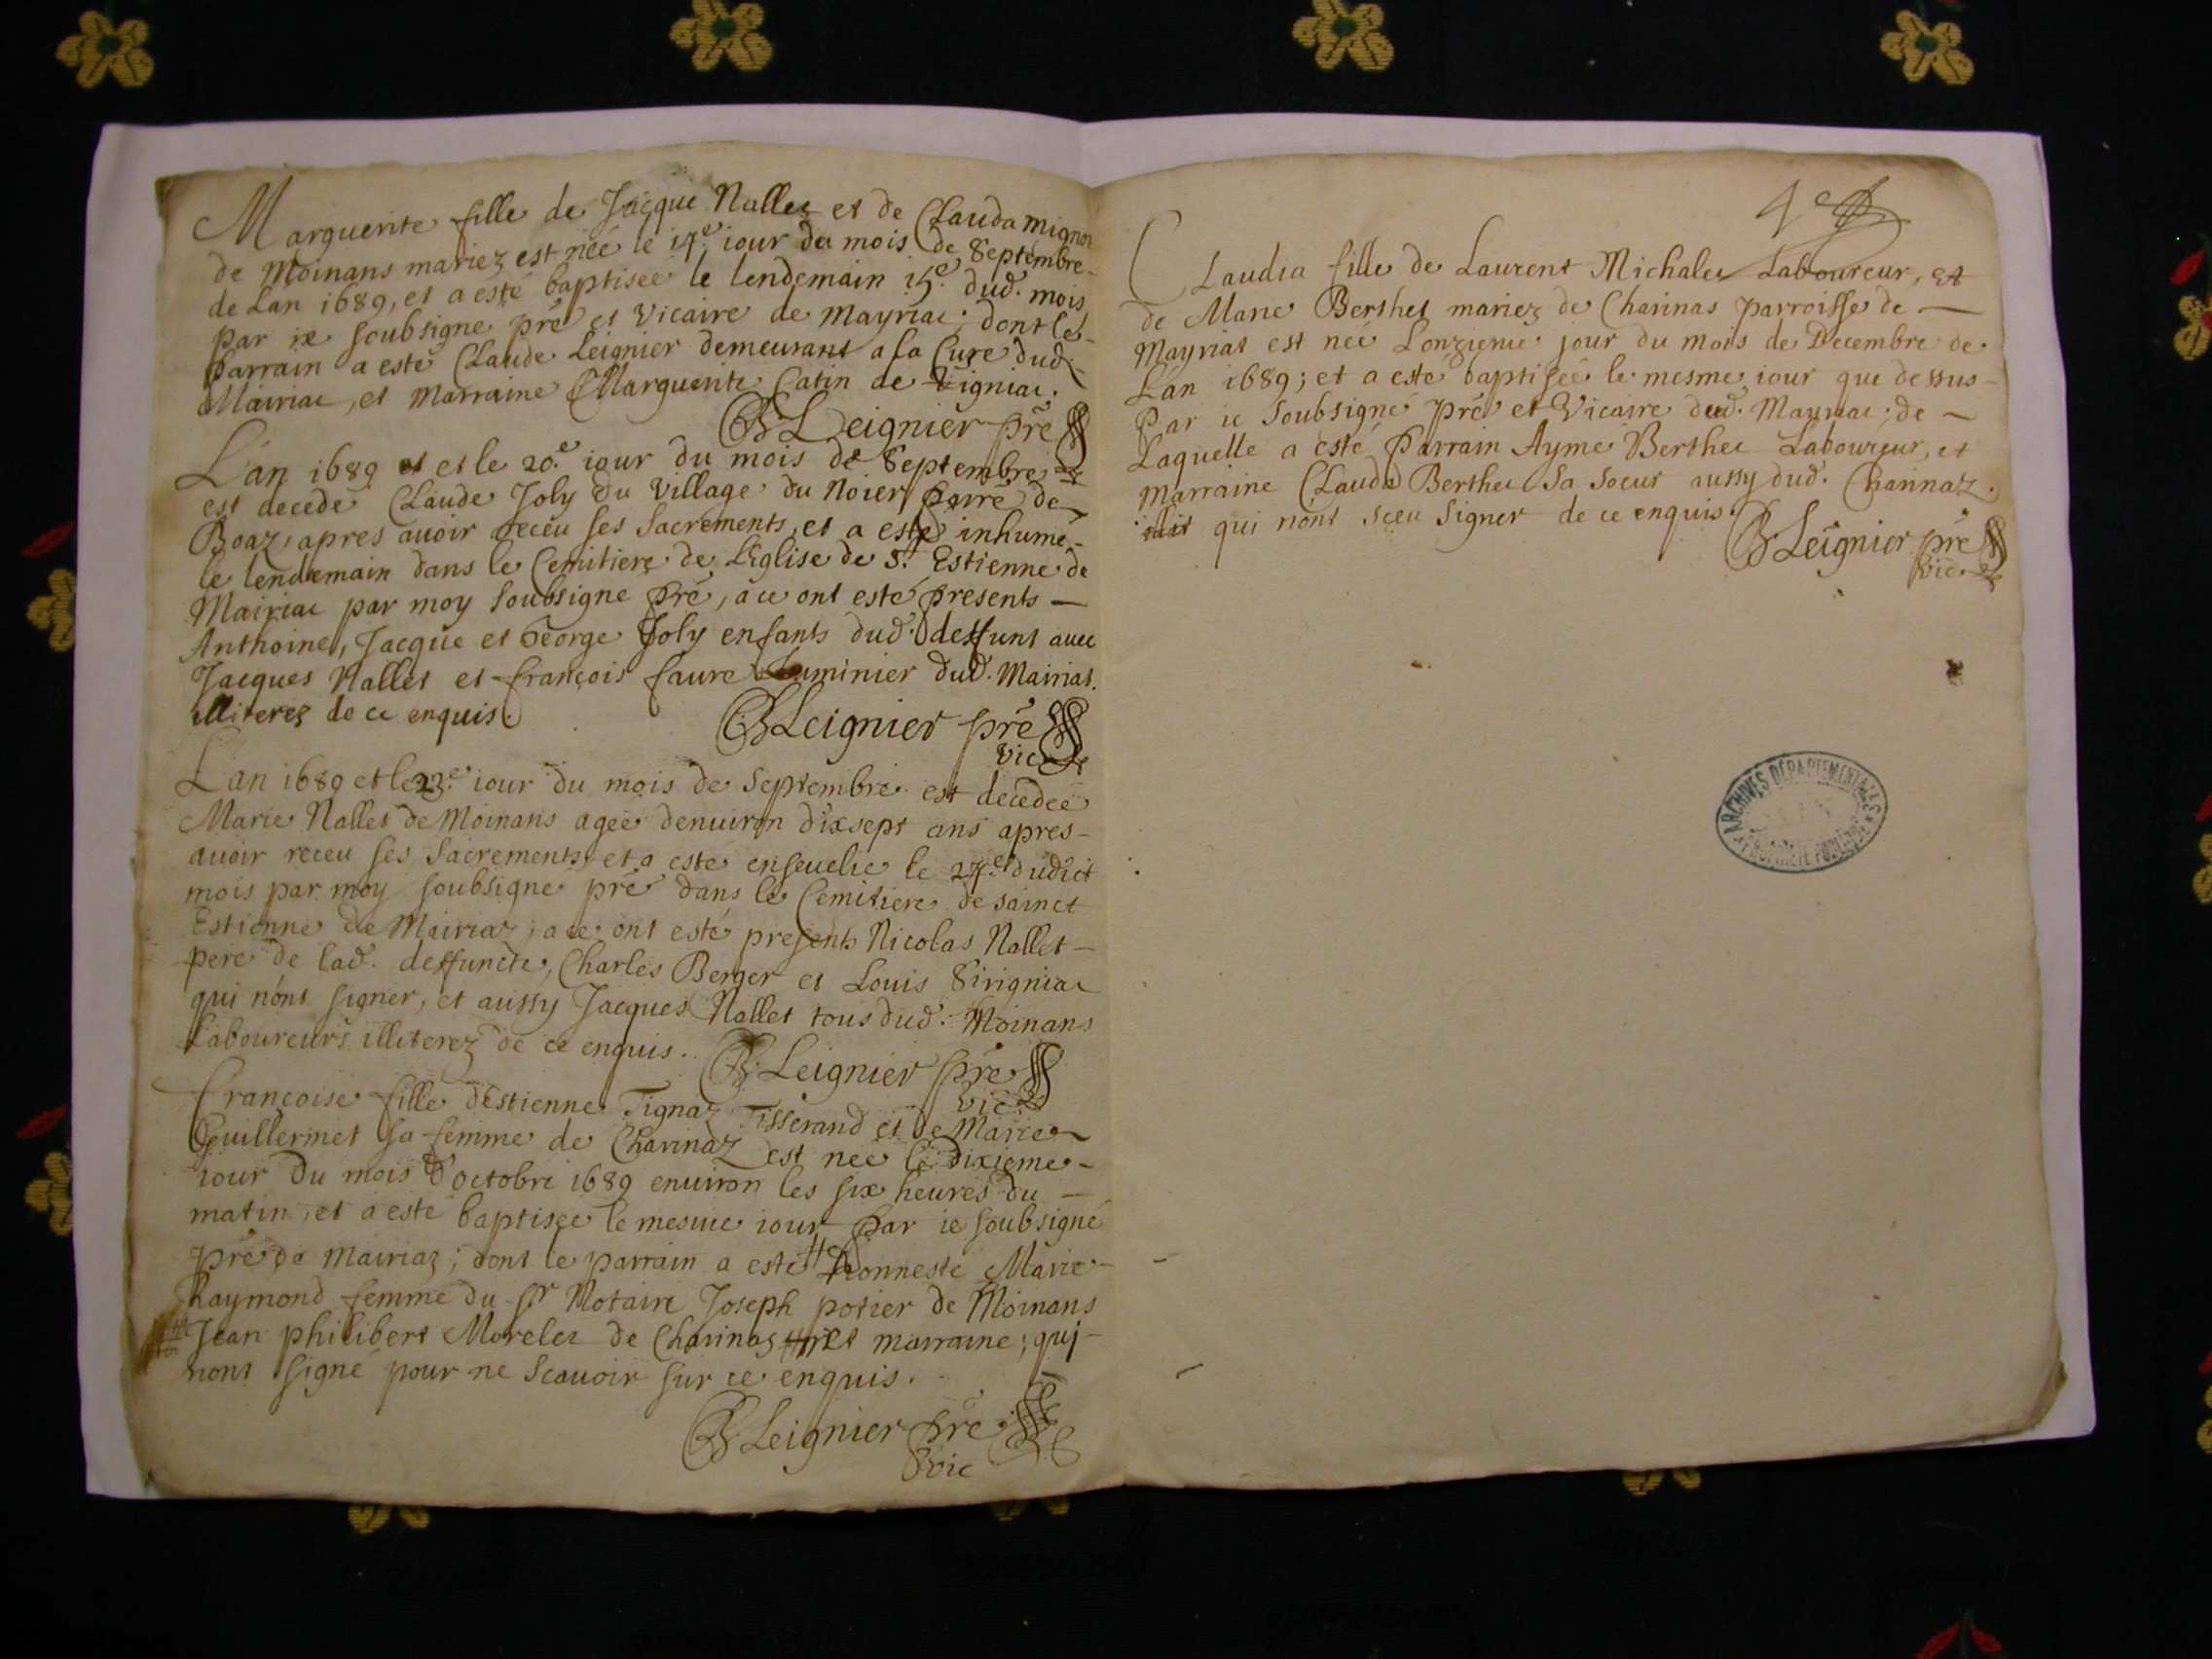 Marguerite fille de Jacque Nallet et de Clauda mignon
de Moinans mariez est née le 14e. iour du mois de Septembre
de Lan 1689, et a esté baptisee le lendemain 15e. dud. mois
par ie soubsigne pre et Vicaire de Mayriac; dont le
Parrain a esté Claude Leignier demeurant a la Cure dud.
Mairiac, et Marraine Marguerite Catin de Vigniac.
Leignier pre
L'an 1689 et et le 20e. iour du mois de Septembre
est decede Claude Joly du Village du Noier parre de
Boaz, apres auoir receu ses Sacrements, et a esté inhumé
le lendemain dans le Cemitiere de L'Eglise de St. Estienne de
Mairiac par moy soubsigne Pre, a ce ont esté presents
Anthoine, Jacque et George Joly enfants dud. deffunt auec
Jacques Nallet et françois faure Luminier dud. Mairiat.
illiterez de ce enquis.
Leignier pre
vic
Lan 1689 et le 23e. iour du mois de Septembre est decedeé
Marie Nallet de Moinans ageé denuiron dixsept ans apres
auoir receu ses Sacrements et a esté enseuelie le 24e. dudict
mois par moy soubsigné pre dans le Cemitiere de sainct
Estienne de Mairiaz; a ce ont esté presents Nicolas Nallet
pere de lad. deffuncte, Charles Berger et Louis Sirigniac
qui nont signer, et aussy Jacques Nallet tous dud. Moinans
Laboureurs illiterez de ce enquis.
Leignier pre
vic.
françoise fille d'Estienne Tignaz Tisserand et de Marie
Guillermet sa femme de Charinaz est neé le dixieme
iour du mois d'octobre 1689 enuiron les six heures du
matin, et a esté baptisee le mesme iour par ie soubsigné
Pre de Mairiaz; dont le parrain a esté honneste Marie
Raymond femme du Sr Notaire Joseph potier de Moinans
Jean philibert Morelet de Charinas et marraine; qui
nont signé pour ne scauoir sur ce enquis.
Leignier pre
vic
4e
Claudia fille de Laurent Michalet Laboureur, et
de Marie Berthet mariez de Charinas parroisse de
Mayriat est neé Lonzieme jour du mois de Decembre de
L'an 1689; et a esté baptiseé le mesme iour que dessus
Par ie soubsigné pre et Vicaire dud. Mayriac; de
Laquelle a esté Parrain Ayme Berthet Laboureur, et
marraine Clauda Berthet sa soeur aussy dud. Charinaz.
qui nont sceu signer de ce enquis.
Leignier pre
vic.
ARCHIVES DÉPARTEMENTALES
PROPRIÉTÉ PUBLIQUE